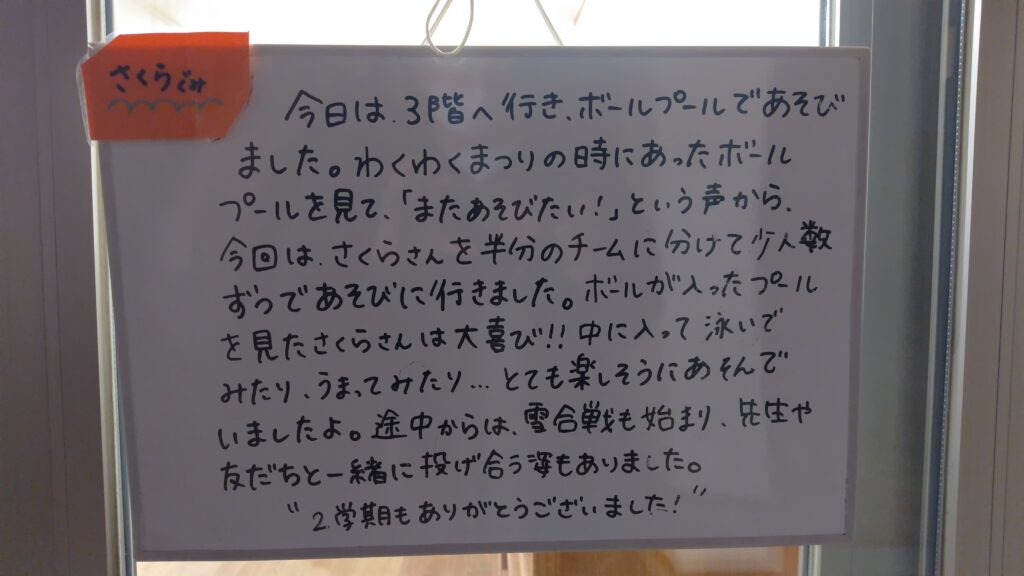 さくらぐみ
今日は、3階へ行き、ボールプールであそび
ました。わくわくまつりの時にあったボール
プールを見て、「またあそびたい!」という声から、
今回は、さくらさんを半分のチームに分けて少人数
ずつであそびに行きました。ボールが入ったプール
を見たさくらさんは大喜び!!中に入って泳いで
みたり、うまってみたり…とても楽しそうにあそんで
いましたよ。途中からは、雪合戦も始まり、先生や
友だちと一緒に投げ合う姿もありました。
"2学期もありがとうございました!"